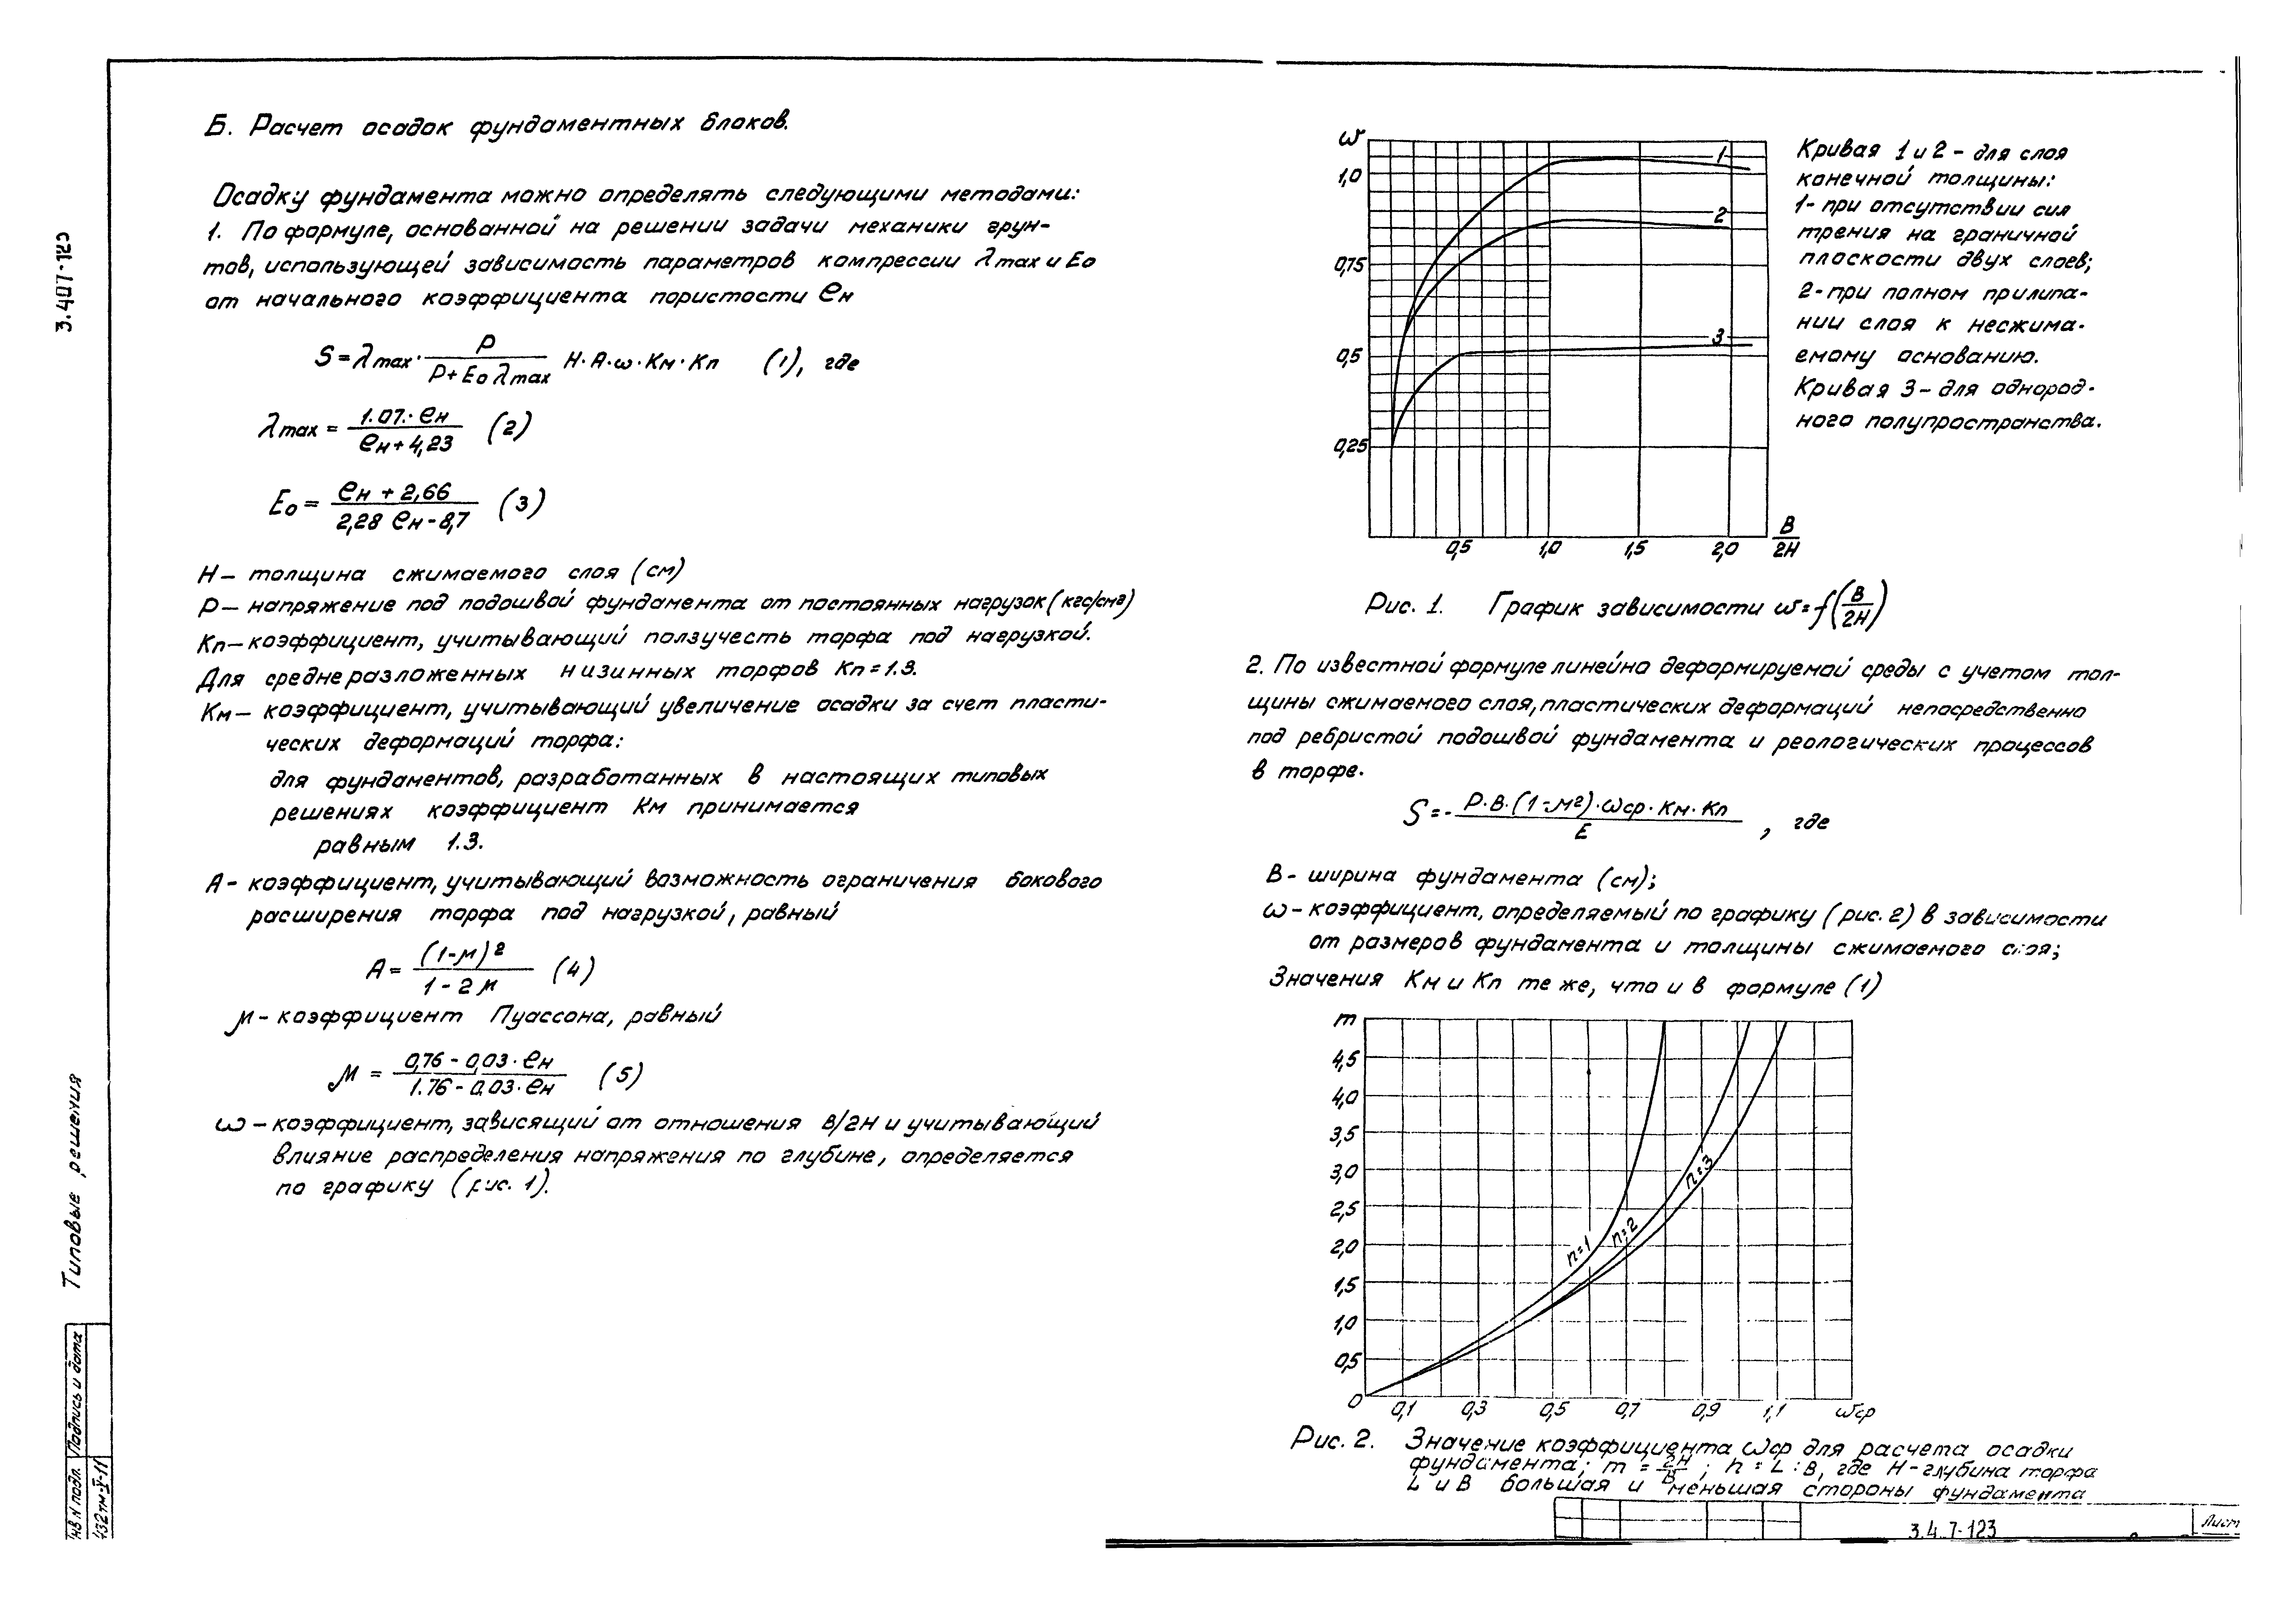 3.407-123
Типовые решения
Инв N подл.
Подпись и дата
432тм-V-11
Б. Расчет осадок фундаментных блоков.
Осадку фундамента можно определять следующими методами:
1. По формуле, основанной на решении задачи механики грун-
тов, использующей зависимость параметров компрессии λmax и Eо
от начального коэффициента пористости eн
S = λmax · P / (P + Eо λmax) H · A · ω · Kм · Kп (1), где
λmax = 1.07 · eн / (eн + 4,23) (2)
Eо = (eн + 2,66) / (2,28 eн - 8,7) (3)
H — толщина сжимаемого слоя (см)
P — напряжение под подошвой фундамента от постоянных нагрузок (кгс/см2)
Kп — коэффициент, учитывающий ползучесть торфа под нагрузкой.
Для среднеразложенных низинных торфов Kп = 1.3.
Kм — коэффициент, учитывающий увеличение осадки за счет пласти-
ческих деформаций торфа:
для фундаментов, разработанных в настоящих типовых
решениях коэффициент Kм принимается
равным 1.3.
A - коэффициент, учитывающий возможность ограничения бокового
расширения торфа под нагрузкой, равный
A = (1-μ)² / (1 - 2μ) (4)
μ - коэффициент Пуассона, равный
μ = (0,76 - 0,03 · eн) / (1.76 - 0,03 · eн) (5)
ω - коэффициент, зависящий от отношения B/2H и учитывающий
влияние распределения напряжения по глубине, определяется
по графику (рис. 1).
ω
1,0
0,75
0,5
0,25
1
2
3
0,5 1,0 1,5 2,0 B/2H
Кривая 1 и 2 - для слоя
конечной толщины:
1- при отсутствии сил
трения на граничной
плоскости двух слоев;
2- при полном прилипа-
нии слоя к несжима-
емому основанию.
Кривая 3 - для однород-
ного полупространства.
Рис. 1. График зависимости ω = f(B/2H)
2. По известной формуле линейно деформируемой среды с учетом тол-
щины сжимаемого слоя, пластических деформаций непосредственно
под ребристой подошвой фундамента и реологических процессов
в торфе.
S = P · B · (1-μ²) · ωср · Kм · Kп / E , где
B - ширина фундамента (см);
ω - коэффициент, определяемый по графику (рис. 2) в зависимости
от размеров фундамента и толщины сжимаемого слоя;
Значения Kм и Kп те же, что и в формуле (1)
m
4,5
4,0
3,5
3,0
2,5
2,0
1,5
1,0
0,5
0
n=1
n=2
n=3
0,1 0,3 0,5 0,7 0,9 1,1 ωср
Рис. 2. Значение коэффициента ωср для расчета осадки
фундамента; m = 2H/B ; n = L : B, где H - глубина торфа
L и B большая и меньшая стороны фундамента
3.4 7-123
Лист